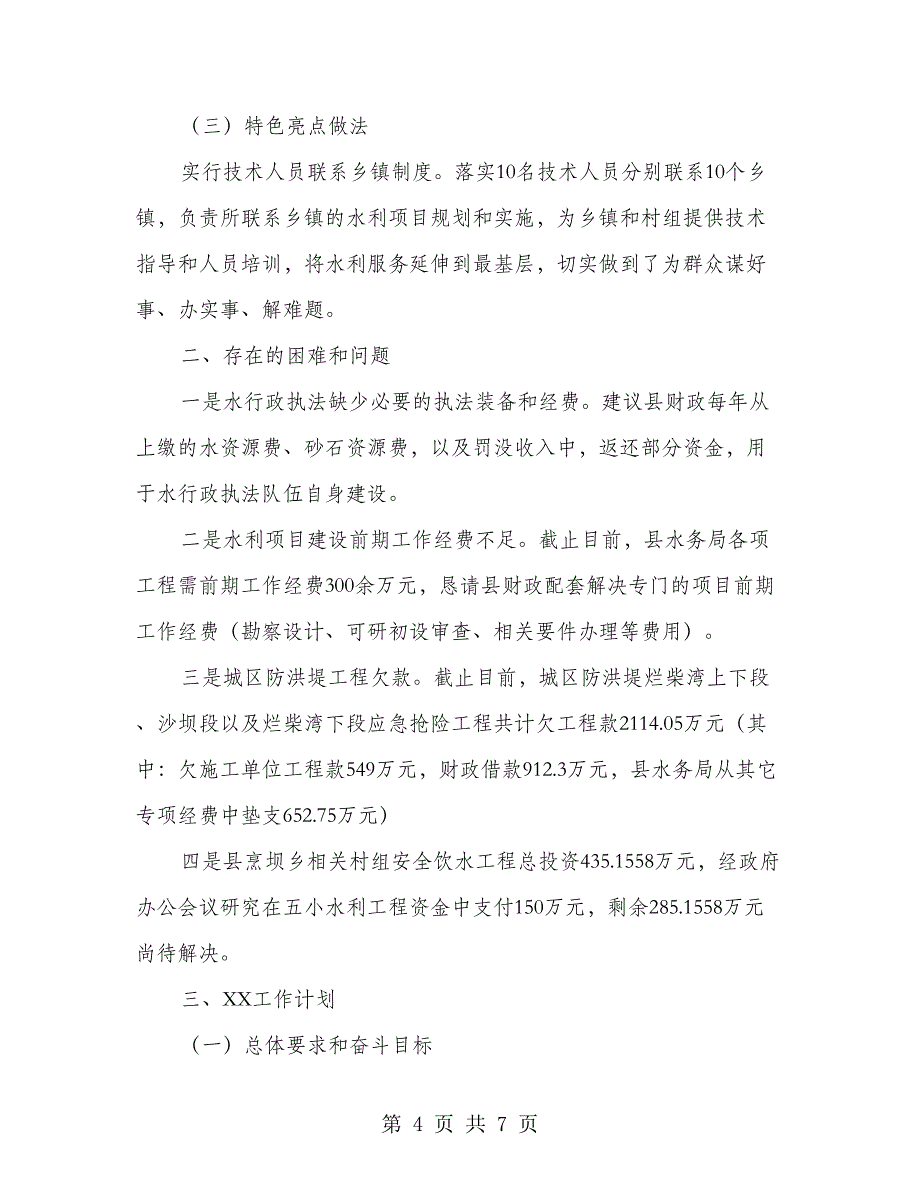 （三）特色亮点做法
实行技术人员联系乡镇制度。落实10名技术人员分别联系10个乡
镇，负责所联系乡镇的水利项目规划和实施，为乡镇和村组提供技术
指导和人员培训，将水利服务延伸到最基层，切实做到了为群众谋好
事、办实事、解难题。
二、存在的困难和问题
一是水行政执法缺少必要的执法装备和经费。建议县财政每年从
上缴的水资源费、砂石资源费，以及罚没收入中，返还部分资金，用
于水行政执法队伍自身建设。
二是水利项目建设前期工作经费不足。截止目前，县水务局各项
工程需前期工作经费300余万元，恳请县财政配套解决专门的项目前期
工作经费（勘察设计、可研初设审查、相关要件办理等费用）。
三是城区防洪堤工程欠款。截止目前，城区防洪堤烂柴湾上下段
、沙坝段以及烂柴湾下段应急抢险工程共计欠工程款2114.05万元（其
中：欠施工单位工程款549万元，财政借款912.3万元，县水务局从其它
专项经费中垫支652.75万元）
四是县烹坝乡相关村组安全饮水工程总投资435.1558万元，经政府
办公会议研究在五小水利工程资金中支付150万元，剩余285.1558万元
尚待解决。
三、XX工作计划
（一）总体要求和奋斗目标
第 4 页 共 7 页